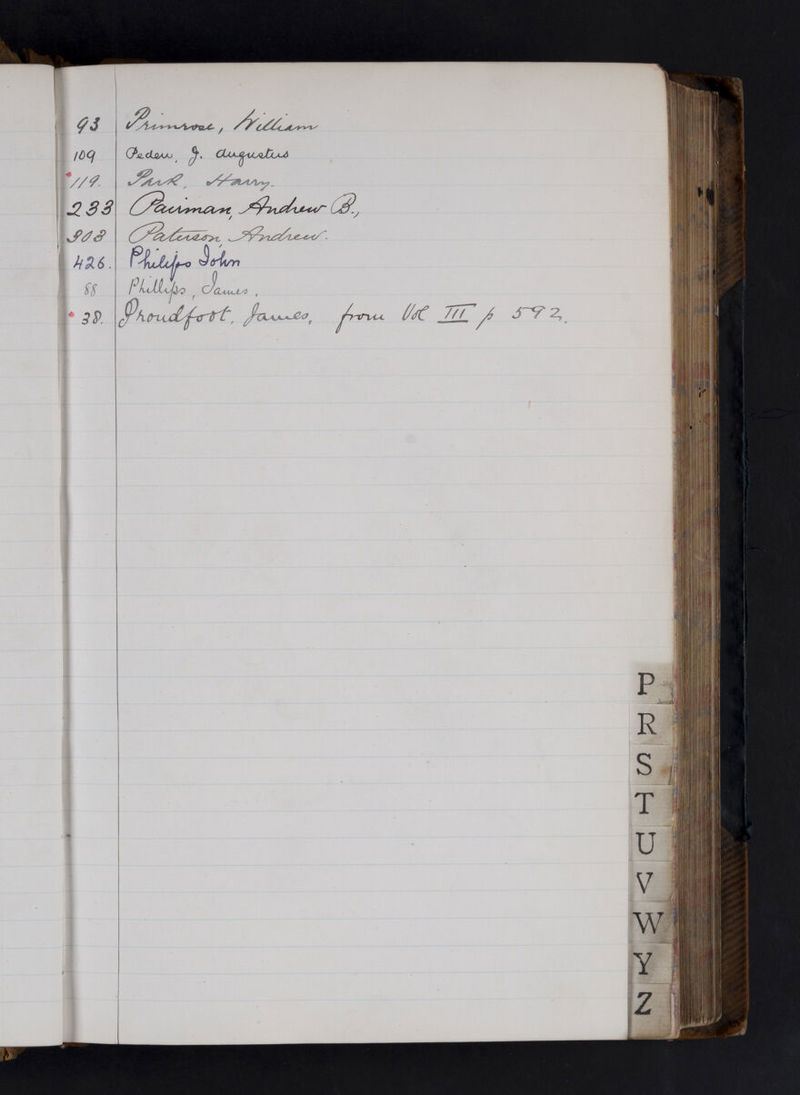 93 Primrose, William
109 Peden, J. Augustus
119. Park, Harry.
233 Pairman, Andrew B.,
303 Paterson, Andrew.
426. Philips John
88 Phillips, James.
38. Proudfoot, James, from Vol III p 592.
P
R
S
T
U
V
W
Y
Z